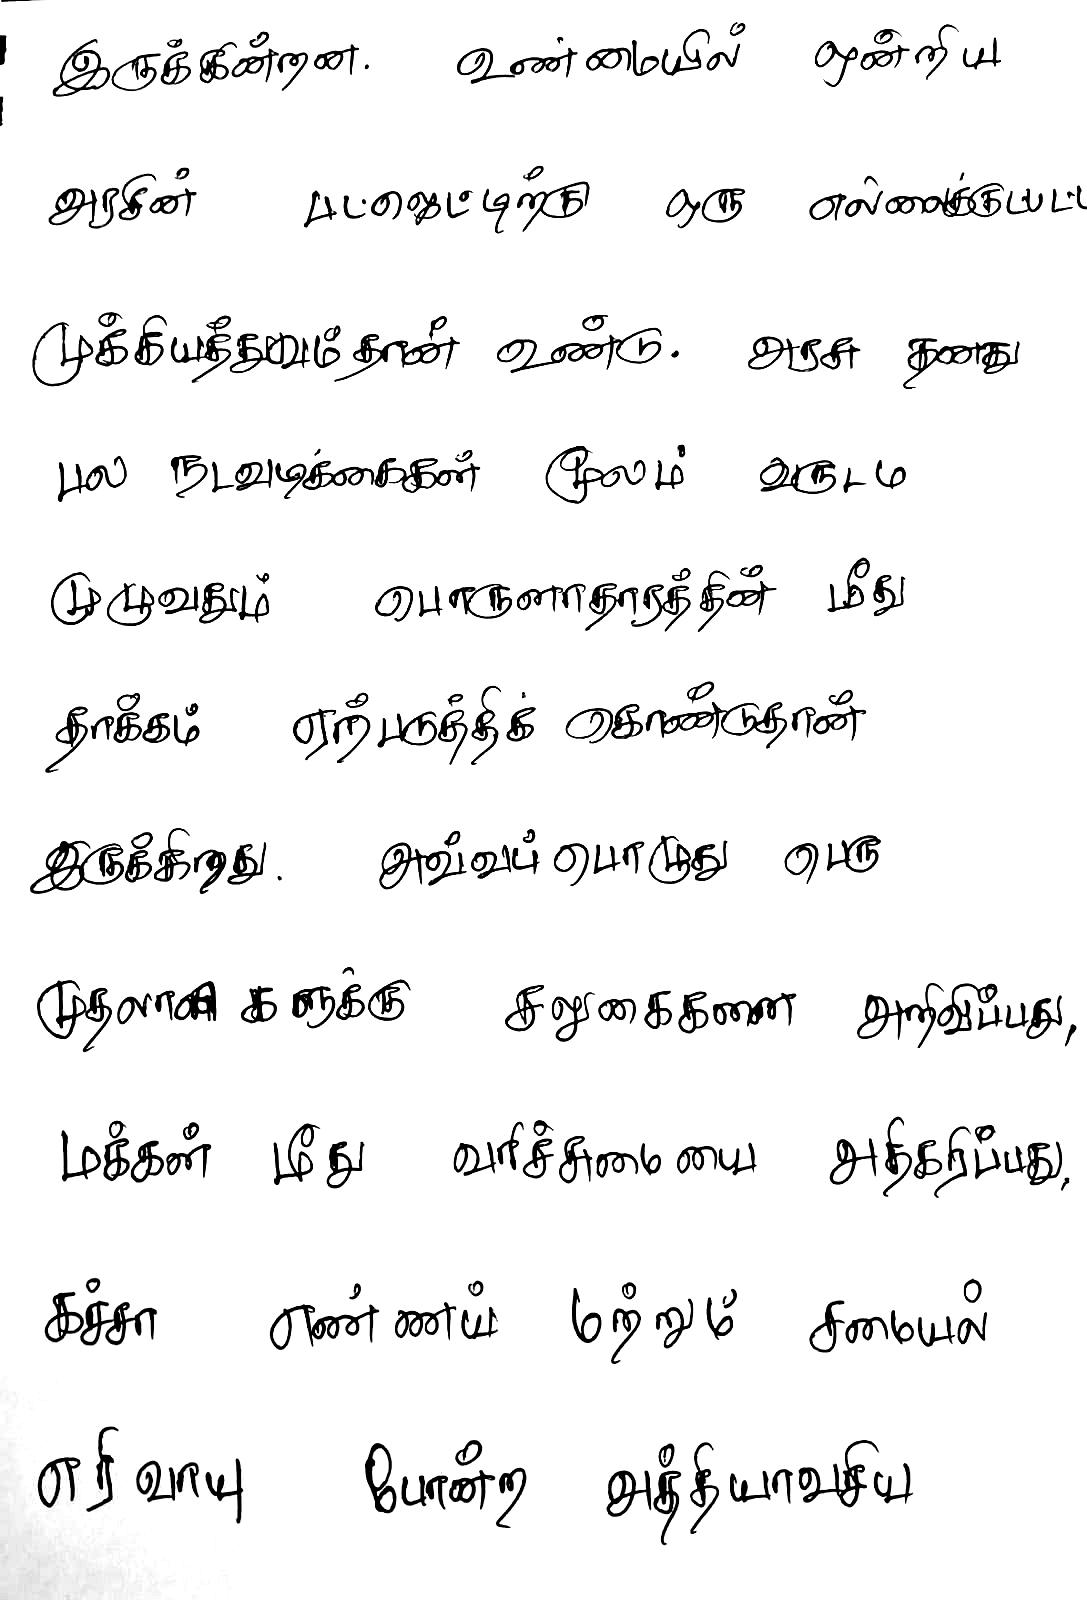 இருக்கின்றன. உண்மையில் ஒன்றிய
அரசின் பட்ஜெட்டிற்கு ஒரு எல்லைக்குட்பட்ட
முக்கியத்துவம்தான் உண்டு. அரசு தனது
பல நடவடிக்கைகள் மூலம் வருடம்
முழுவதும் பொருளாதாரத்தின் மீது
தாக்கம் ஏற்படுத்திக் கொண்டுதான்
இருக்கிறது. அவ்வப்பொழுது பெரு
முதலாளிகளுக்கு சலுகைகளை அறிவிப்பது,
மக்கள் மீது வரிச்சுமையை அதிகரிப்பது,
கச்சா எண்ணெய் மற்றும் சமையல்
எரிவாயு போன்ற அத்தியாவசிய